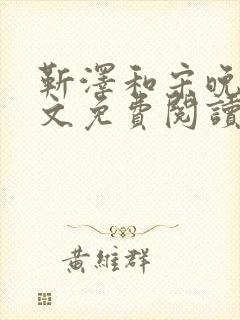 靳澤和宋晚
文免費閱讀
黃維群